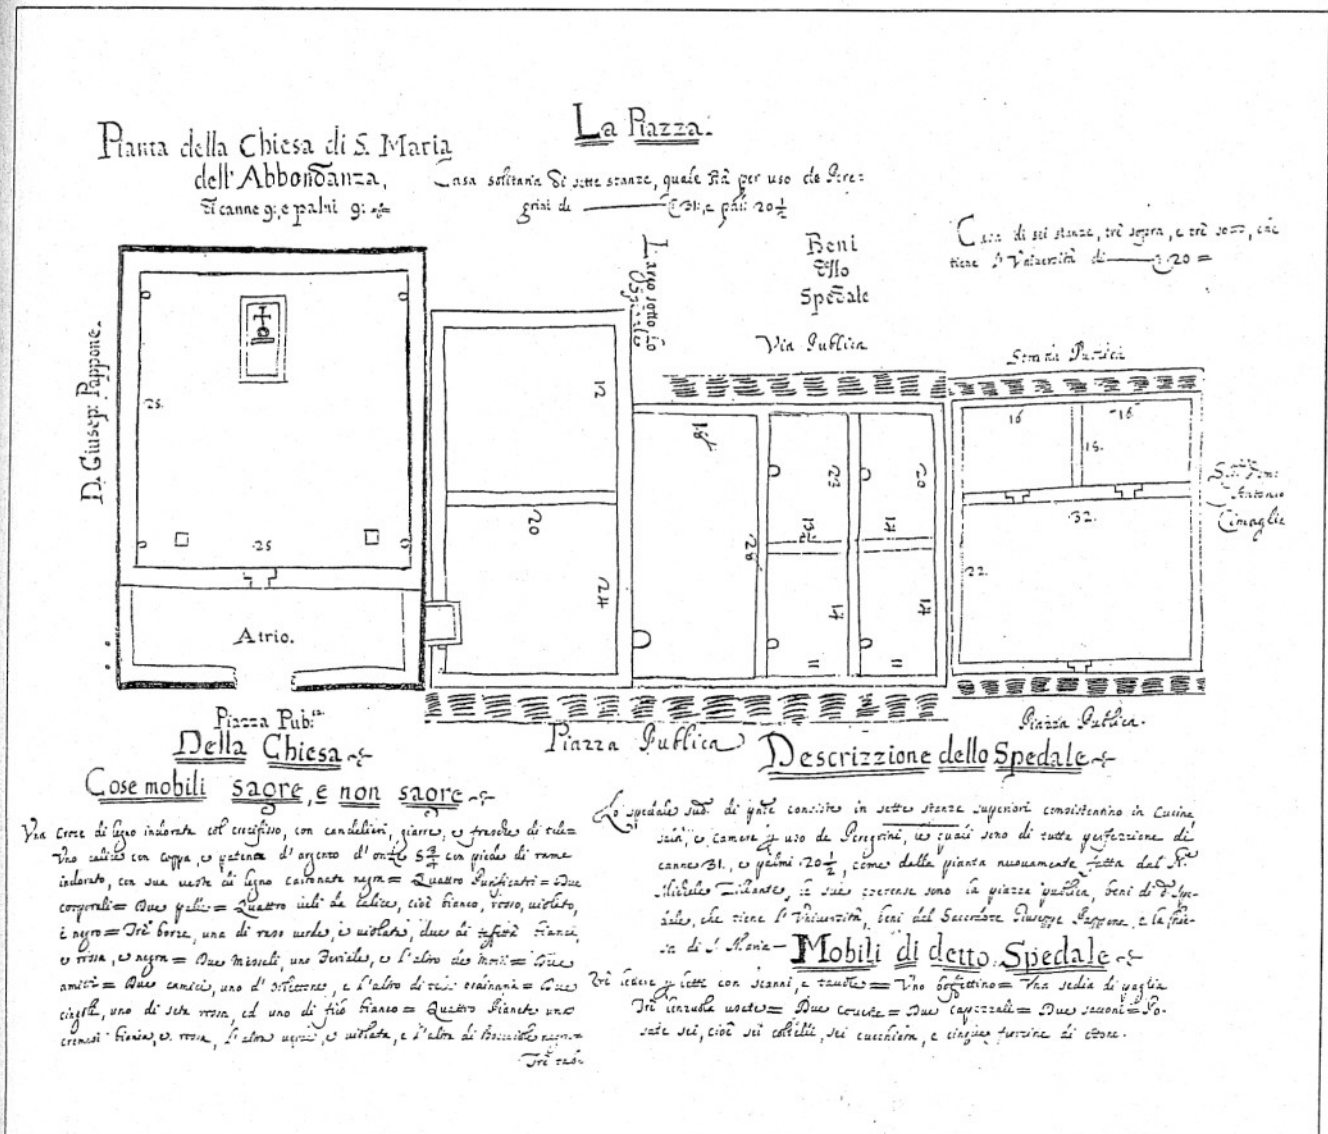 La Piazza.
Pianta della Chiesa di S. Maria
dell'Abbondanza,
di canne 9: e palmi 9:
Casa solitaria di sette stanze, quale stà per uso de Pere=
grini di 31:, e pal: 20 1/2
Casa di sei stanze, trè sopra, e trè sotto, che
tiene l'Università di 20 =
Beni
dello
Spedale
Largo sotto lo
Spedale
Via Publica
D. Giusep: Pappone.
25.
25
Atrio.
12
20
24
18
28
23
20
17
17
17
11
11
16
16
15.
32.
22.
Antonio
Cimaglia
Piazza Pub:
Piazza Publica
Piazza Publica.
Della Chiesa
Cose mobili sagre, e non sagre
Una Croce di legno indorata col crocifisso, con candelieri, giarre, e frasche di
Uno calice con coppa, e patena d'argento d'oncie 5 3/4 con piede di rame
indorato, con sua veste di legno negra = Quattro Purificatri = Due
corporali = Due palle = Quattro veli da calice, cioè bianco, rosso, violato,
e negro = Trè borze, una di raso verde, e violata, due di taffettà bianca,
e rossa, e negra = Due Messali, uno Feriale, e l'altro de morti = Due
amitti = Due camici, uno d' e l'altro di ordinaria = Due
cingoli, uno di seta rossa, ed uno di filo bianco = Quattro Pianete una
bianca, e rossa, l'altra verde, e violata, e l'altra di negra =
Trè
Descrizzione dello Spedale
Lo spedale sud.º di consiste in sette stanze superiori consistentino in Cucina,
sala, e camere per uso de Peregrini, le quali sono di tutta perfezzione di
canne 31., e palmi 20 1/2, come dalla pianta nuovamente fatta dal
Michele le sue coerenze sono la piazza publica, beni di d.º Spe-
dale, che tiene l'Università, beni del Sacerdote Giuseppe Pappone, e la Chie-
sa di S. Maria =
Mobili di detto Spedale
Trè lettere per letti con scanni, e tavole = Uno boffettino = Una sedia di paglia
Trè linzuola usate = Due coverte = Due capezzali = Due sacconi = Po-
sate sei, cioè sei coltelli, sei cucchiara, e cinque furcine di ottone.